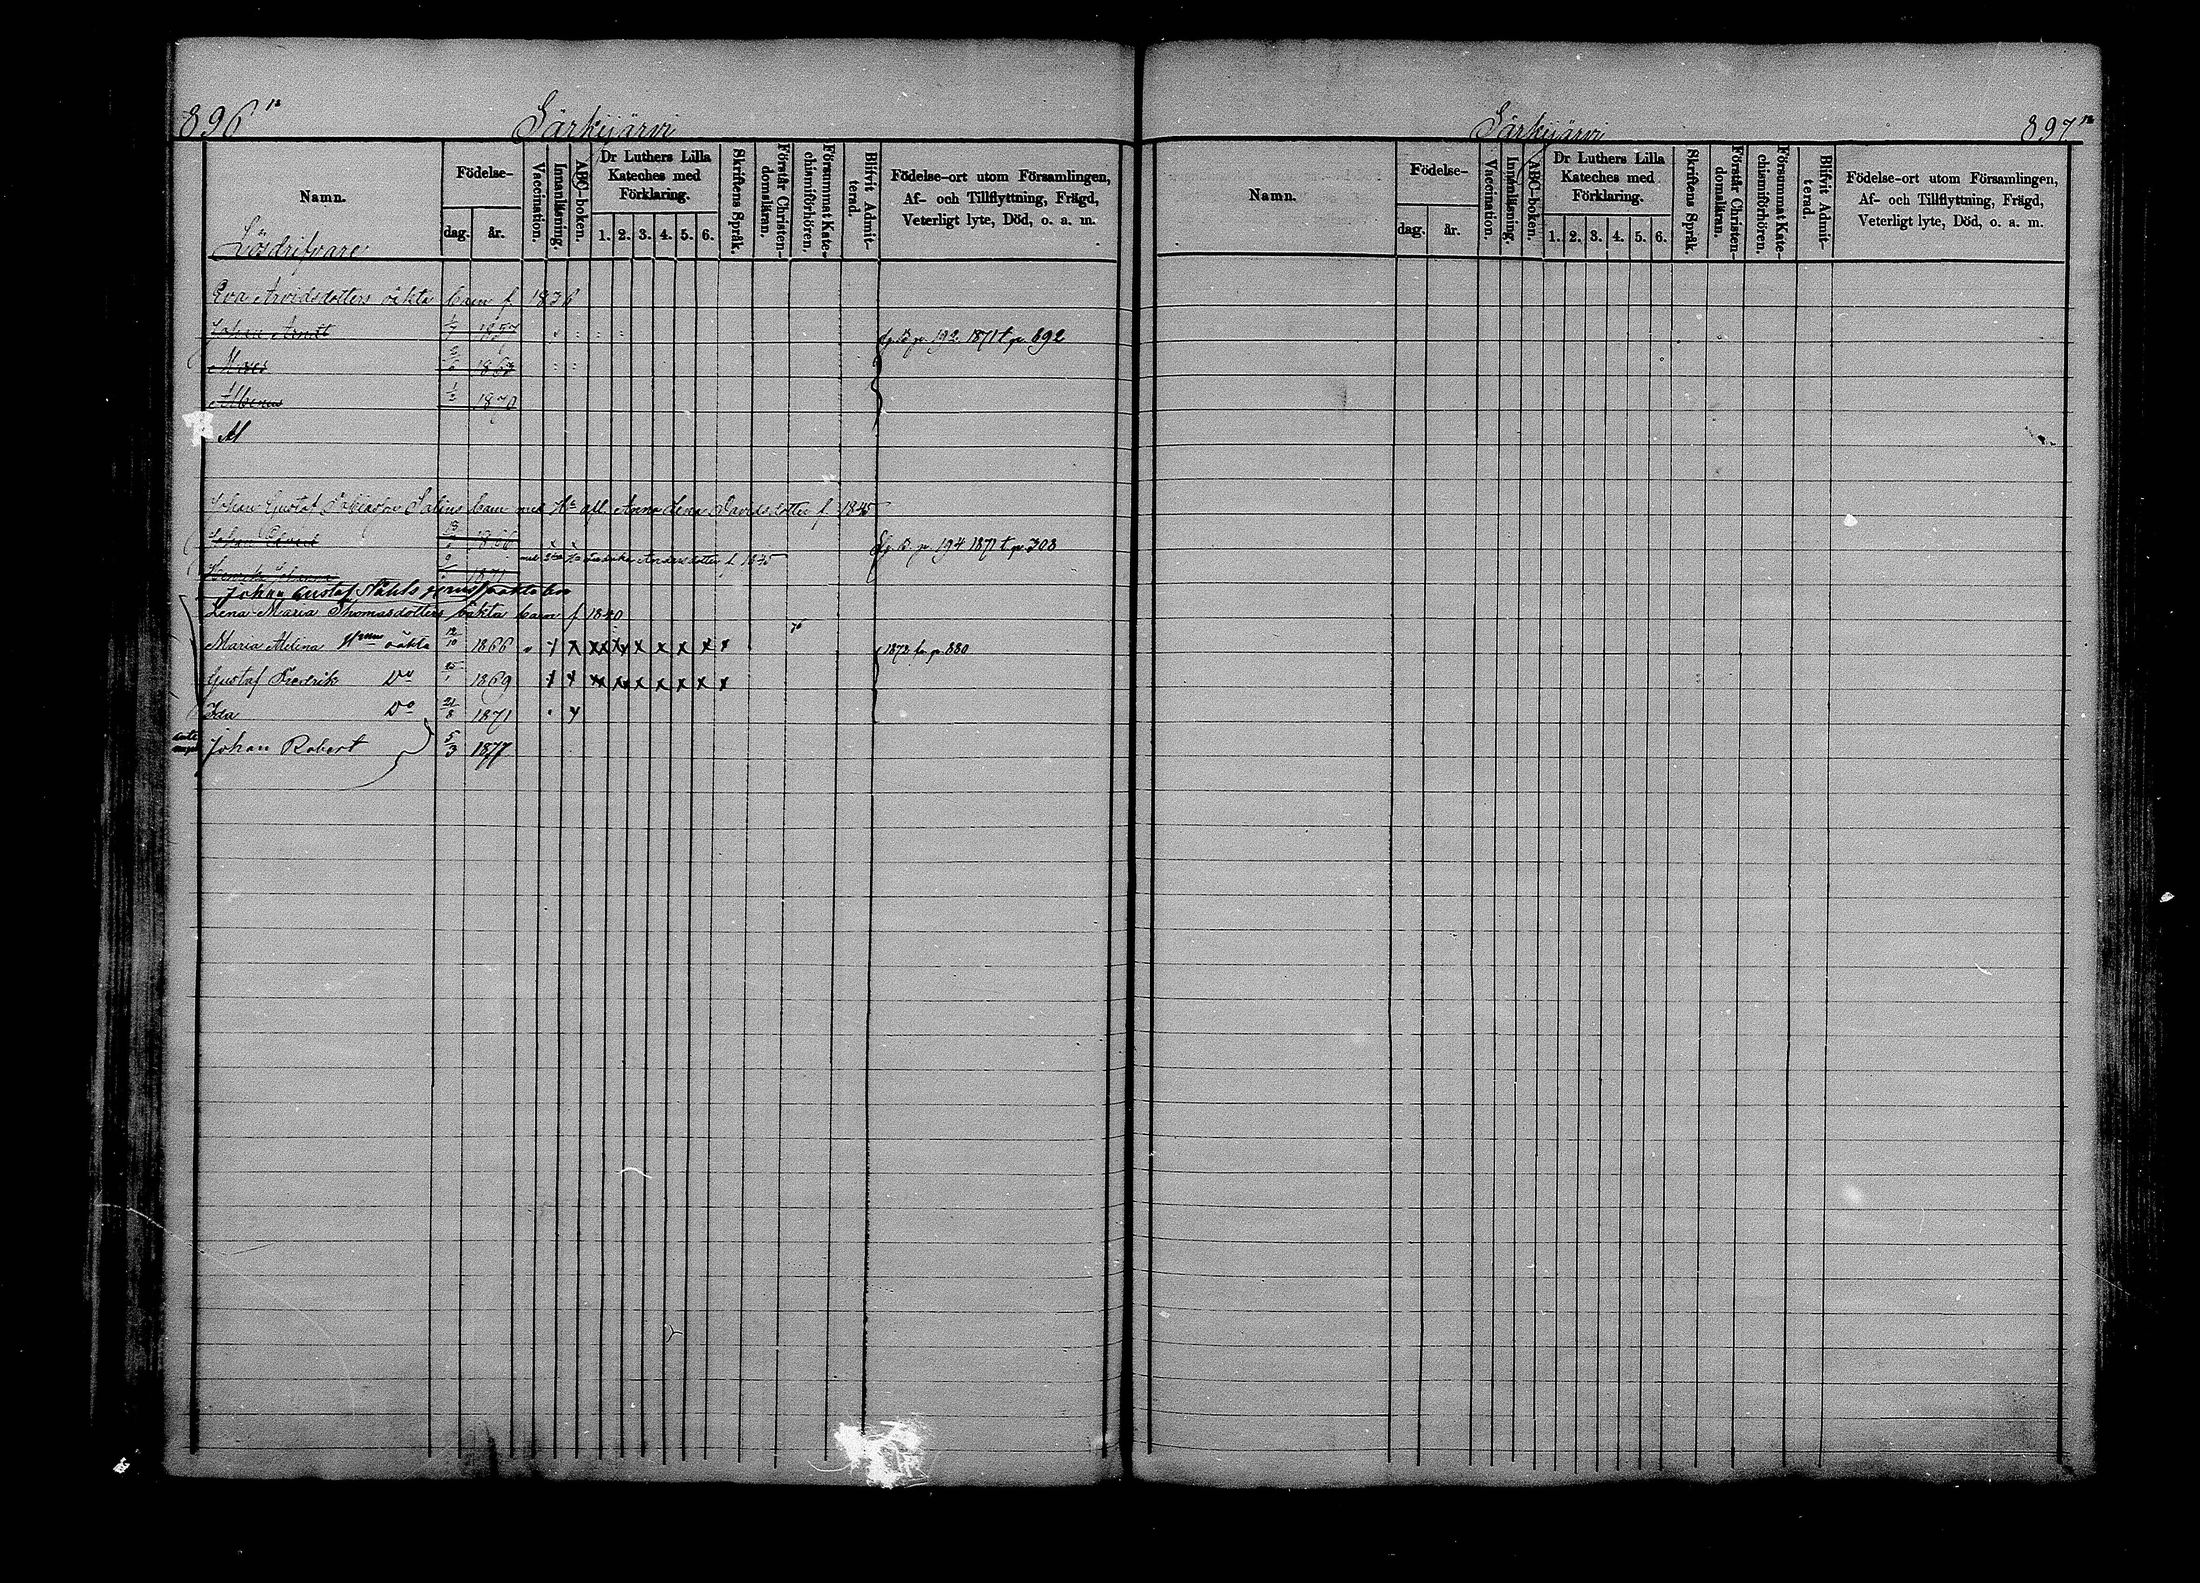 896 12
Särkijärvi
Namn.
Födelse-
dag. år.
Vaccination.
Innanläsning.
ABC-boken.
Dr Luthers Lilla Kateches med Förklaring.
1. 2. 3. 4. 5. 6.
Skriftens Språk.
Förstår Christendomsläran.
Försummat Katechismiförhören.
Blifvit Admitterad.
Födelse-ort utom Församlingen,
Af- och Tillflyttning, Frägd,
Veterligt lyte, Död, o. a. m.
Lösdrifvare
Eva Arvidsdotters oäkta barn f 1836
Johan 1857 p. 192 1871 t p. 892
Moses 2/6 186
Albinus 1/2 1870
Al
Johan Gustaf Salins barn med Hu afl. Anna Lena Davidsdotter f. 1845
Johan Edvard 1866 p. 194 1871 t p. 308
med Andersdotter f. 1835
Henrik Johan 1871
Johan Gustaf
Lena Maria Thomasdotters oäkta barn f 1840
Maria Melina oäkta 12/10 1866 x x x x x x x x x 1872 p. 880
Gustaf Fredrik Do 25/1 1869 x x x x x x x x x
Ida Do 21/8 1871 x
Johan Robert 5/3 1877
Särkijärvi
897 12
Namn.
Födelse-
dag. år.
Vaccination.
Innanläsning.
ABC-boken.
Dr Luthers Lilla Kateches med Förklaring.
1. 2. 3. 4. 5. 6.
Skriftens Språk.
Förstår Christendomsläran.
Försummat Katechismiförhören.
Blifvit Admitterad.
Födelse-ort utom Församlingen,
Af- och Tillflyttning, Frägd,
Veterligt lyte, Död, o. a. m.